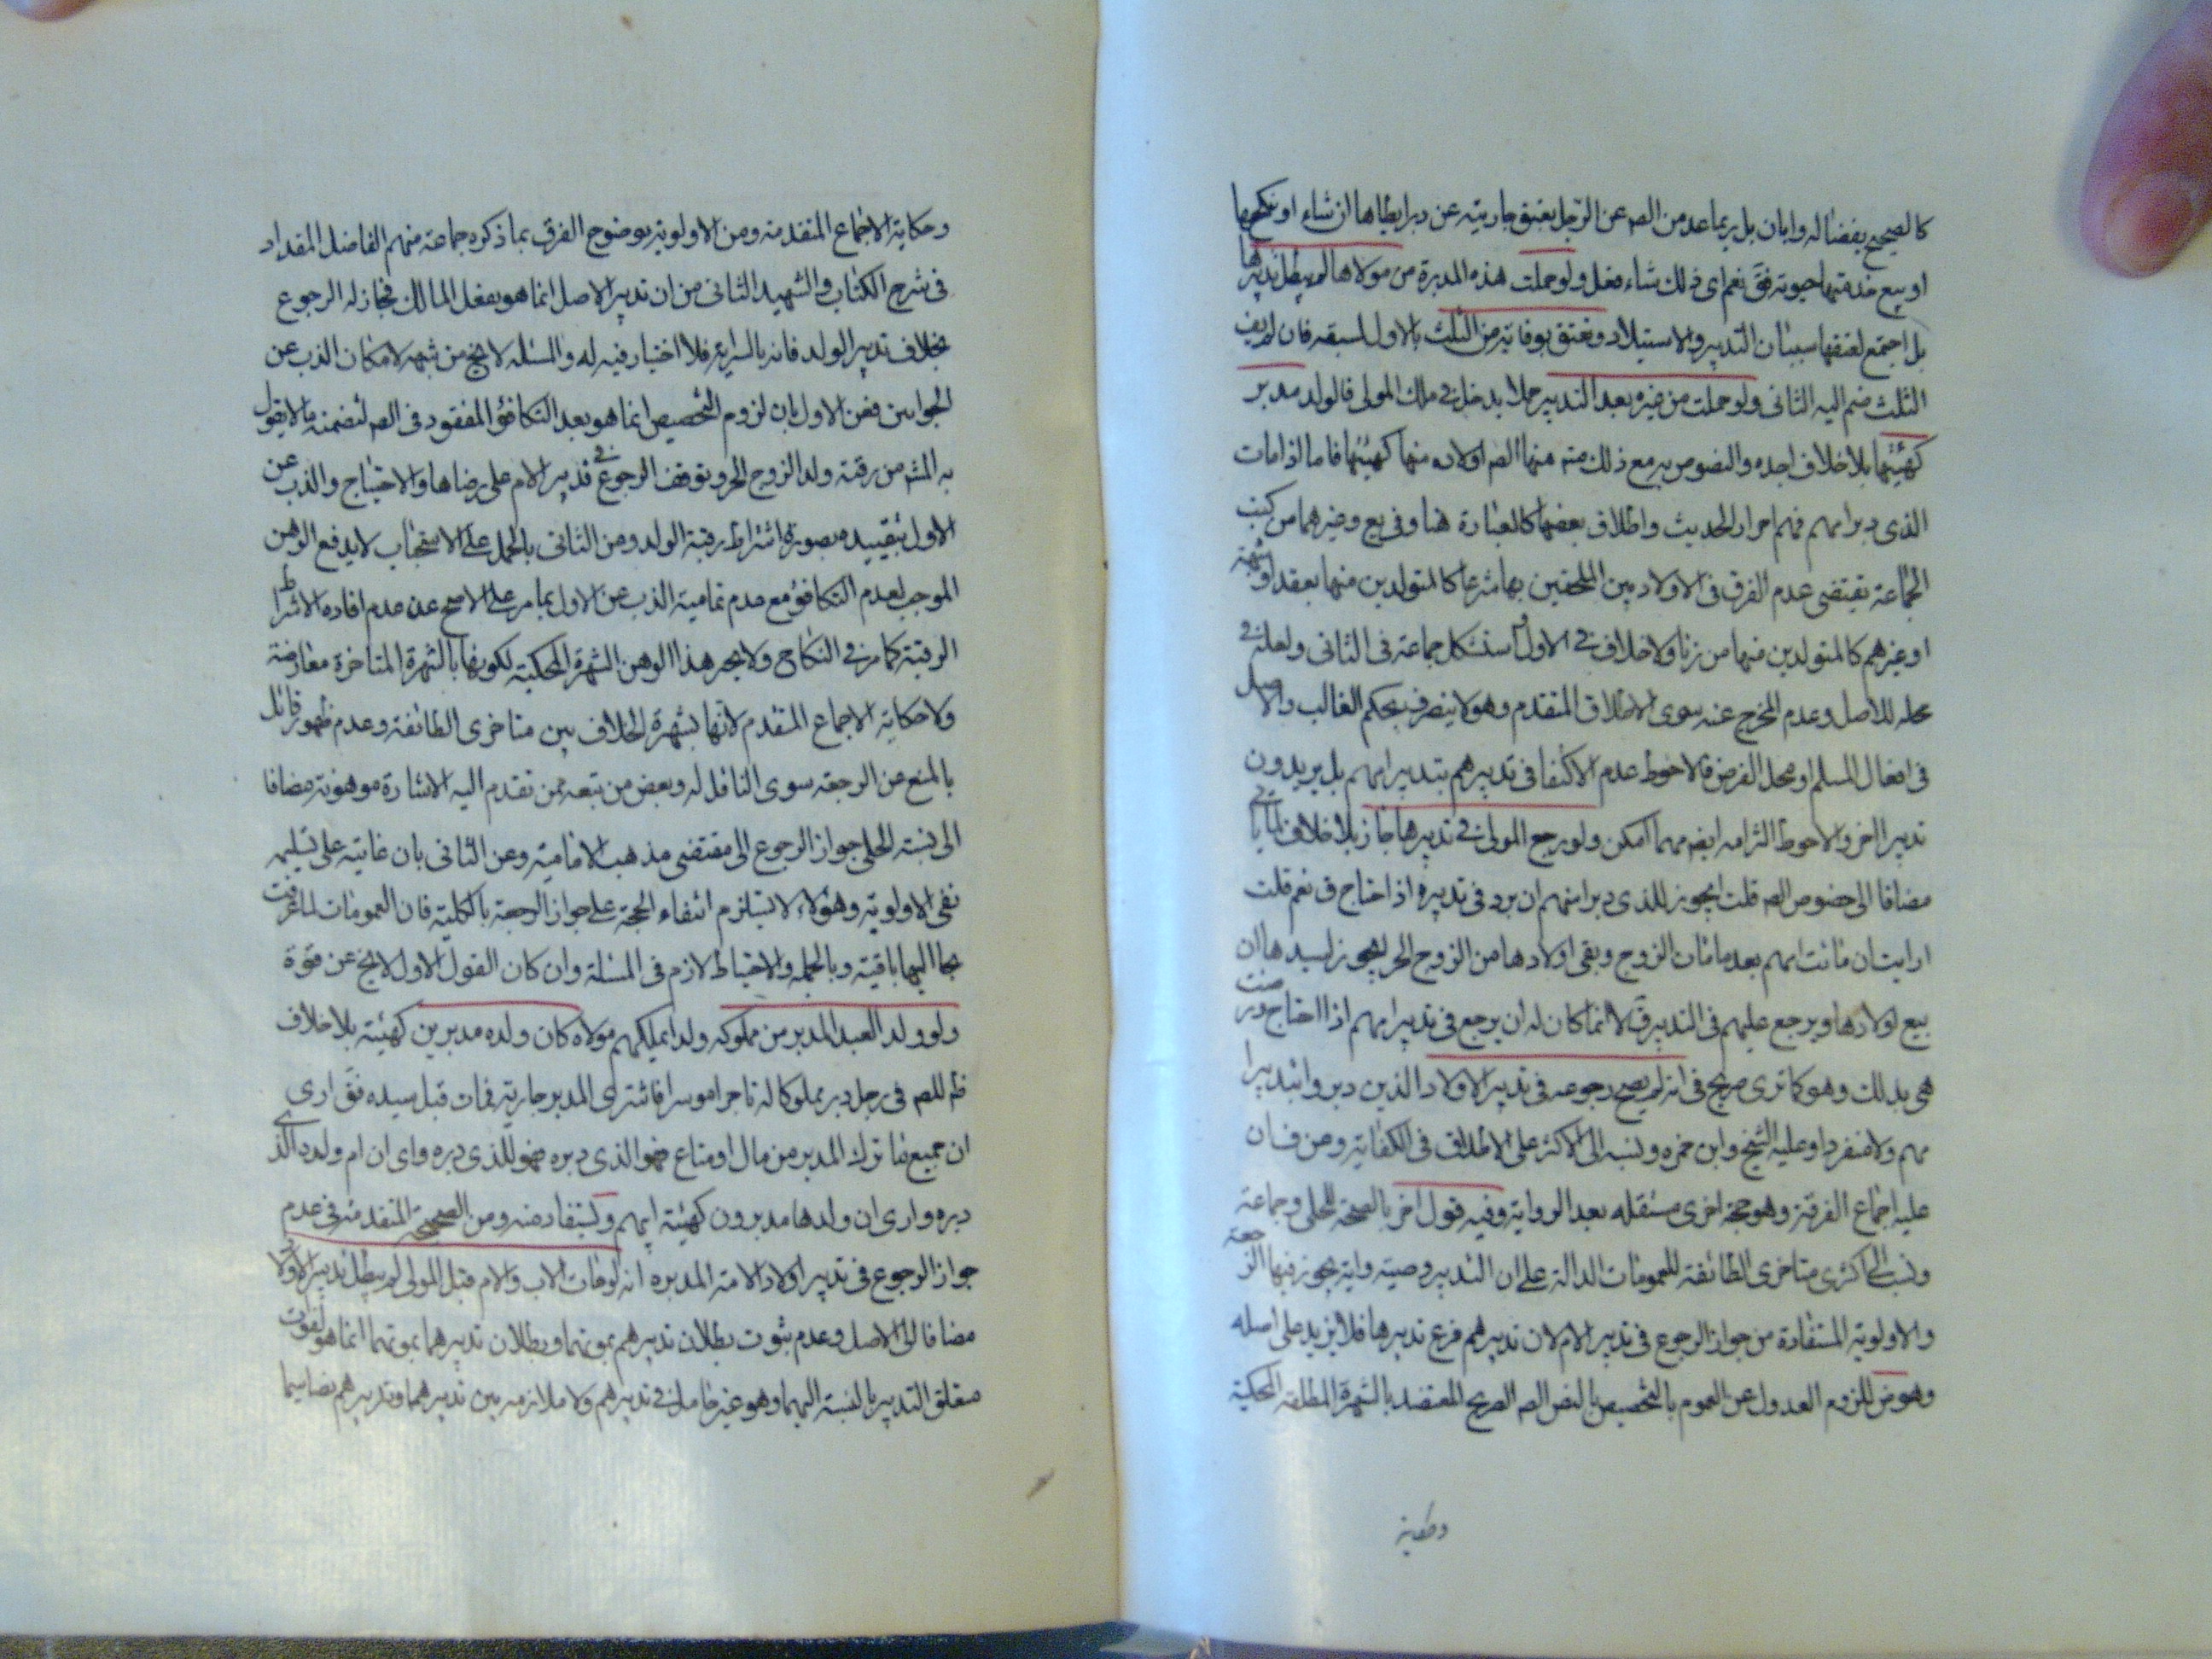 كالصحيح بفضاله وابان بل ربما عد من الصه عن الرجل يعتق جاريته عن دبر ايطاها ان شاء او ينكحها
او بيع خدمتها حيوته فقَ نعم اى ذلك شاء فعل ولو حملت هذه المدبرة من مولاها لم يبطل تدبيرها
بل اجتمع لعتقها سببان التدبير والاستيلاد وتعتق بوفاته من الثلث بالاول لسبقه فان لم يف
الثلث ضم اليه الثانى ولو حملت من غيره بعد التدبير حملا يدخل فى ملك المولى فالولد مدبر
كهيئتها بلا خلاف اجده والنصوص به مع ذلك منها الصه اولاده منها كهيئتها فاما اذا مات
الذى دبر امهم فهم احرار الحديث واطلاق بعضها كالعبارة هنا وفى يع وغيرهما من كتب
الجماعة يقتضى عدم الفرق فى الاولاد بين الملحقين بها شرعا كالمتولدين منها بعقد او شبهة
او غيرهم كالمتولدين منها من زنا ولا خلاف فى الاول واستشكل جماعة فى الثانى ولعله فى
محله للاصل وعدم المخرج عنه سوى الاطلاق المتقدم وهو لا ينصرف بحكم الغالب والاصل
فى افعال المسلم او محل الفرض فالاحوط عدم الاكتفا فى تدبيرهم بتدبير امهم بل يريدون
تدبيرا اخر والاحوط التزامه ايضه مهما امكن ولو رجع المولى فى تدبيرها جاز بلا خلاف لما ياتى
مضافا الى خصوص الصه قلت ايجوز للذى دبر امهم ان يرد فى تدبيره اذا احتاج ق نعم قلت
ارايت ان ماتت امهم بعد ما مات الزوج وبقى اولادها من الزوج الحر ايجوز لسيدها ان
بيع اولادها ويرجع عليهم فى التدبير قَ لا انما كان له ان يرجع فى تدبير امهم اذا احتاج ورضيت
هى بذلك وهو كما ترى صريح فى انه لم يصح رجوعه فى تدبير الاولاد الذين دبروا بتدبيرا
مهم ولا منفردا وعليه الشيخ وابن حمزه ونسبه الى الاكثر على الاطلاق فى الكفاية ومن ف ان
عليه اجماع الفرقة وهو حجة اخرى مستقله بعد الرواية وفيه قول اخر بالصحة للحلى وجماعة
ونسب الى اكثرى متاخرى الطائفة للعمومات الدالة على ان التدبير وصية وانه يجوز فيها الرجعة
والاولوية المستفادة من جواز الرجوع فى تدبير الام لان تدبيرهم فرع تدبيرها فلا يزيد على اصله
وهو ض للزوم العدول عن العموم بالتخصيص بالنص الصه الصريح المعتضد بالشهرة المطلقة المحكية
وحكاية
وحكاية الاجماع المتقدمة ومن الاولوية بوضوح الفرق بما ذكره جماعة منهم الفاضل المقداد
فى شرح الكتاب والشهيد الثانى من ان تدبير الاصل انما هو بفعل المالك فجاز له الرجوع
بخلاف تدبير الولد فانه بالسراية فلا اختيار فيه له والمسئله لا يخ من شبهه لامكان الذب عن
الجوابين فعن الاول بان لزوم التخصيص انما هو بعد التكافؤ المفقود فى الصه لتضمنه ما لا يقول
به المشه من رقية ولد الزوج الحر وتوقف الرجوع فى تدبير الام على رضاها والاحتياج والذب عن
الاول بتقييده بصورة اشتراط رقية الولد ومن الثانى بالحمل على الاستحباب لا يدفع الوهن
الموجب لعدم التكافؤ مع عدم تمامية الذب عن الاول بما مر على الاصح عن عدم افاده الاشتراط
الرقية كما مر فى النكاح ولا يجبر هذا الوهن الشهرة المحكية لكونها بالشهرة المتاخرة معارضة
ولا حكاية الاجماع المتقدم لانها بشهرة الخلاف بين متاخرى الطائفة وعدم ظهور قائل
بالمنع من الرجعة سوى الناقل له وبعض من تبعه ممن تقدم اليه الاشارة موهونة مضافا
الى نسبة الحلى جواز الرجوع الى مقتضى مذهب الامامية وعن الثانى بان غايته على تسليمه
نفى الاولوية وهؤلاء لا يستلزم انتفاء الحجة على جواز الرجعة بالكلية فان العمومات لما عرفت
بما اليها باقية وبالجمله والاحتياط لازم فى المسئلة وان كان القول الاول لا يخ عن قوة
ولو ولد العبد المدبر من مملوكه ولدا يملكهم مولاه كان ولده مدبرين كهيئته بلا خلاف
ظه للصه فى رجل دبر مملوكا له تاجرا موسرا فاشترى المدبر جارية فمات قبل سيده فقَ ارى
ان جميع ما ترك المدبر من مال او متاع فهو للذى دبره فهو للذى دبره وارى ان ام ولده للذى
دبره وارى ان ولدها مدبرون كهيئة ابيهم ويستفاد منه ومن الصحيحة المتقدمة فى عدم
جواز الرجوع فى تدبير اولاد الامة المدبره انه لو مات الاب والام قبل المولى لم يبطل تدبير الاولاد
مضافا الى الاصل وعدم ثبوت بطلان تدبيرهم بموتهما وبطلان تدبيرهما بموتهما انما هو لفوات
متعلق التدبير بالنسبة اليهما وهو غير حاصل فى تدبيرهم ولا ملازمه بين تدبيرهما وتدبيرهم بضا سيما